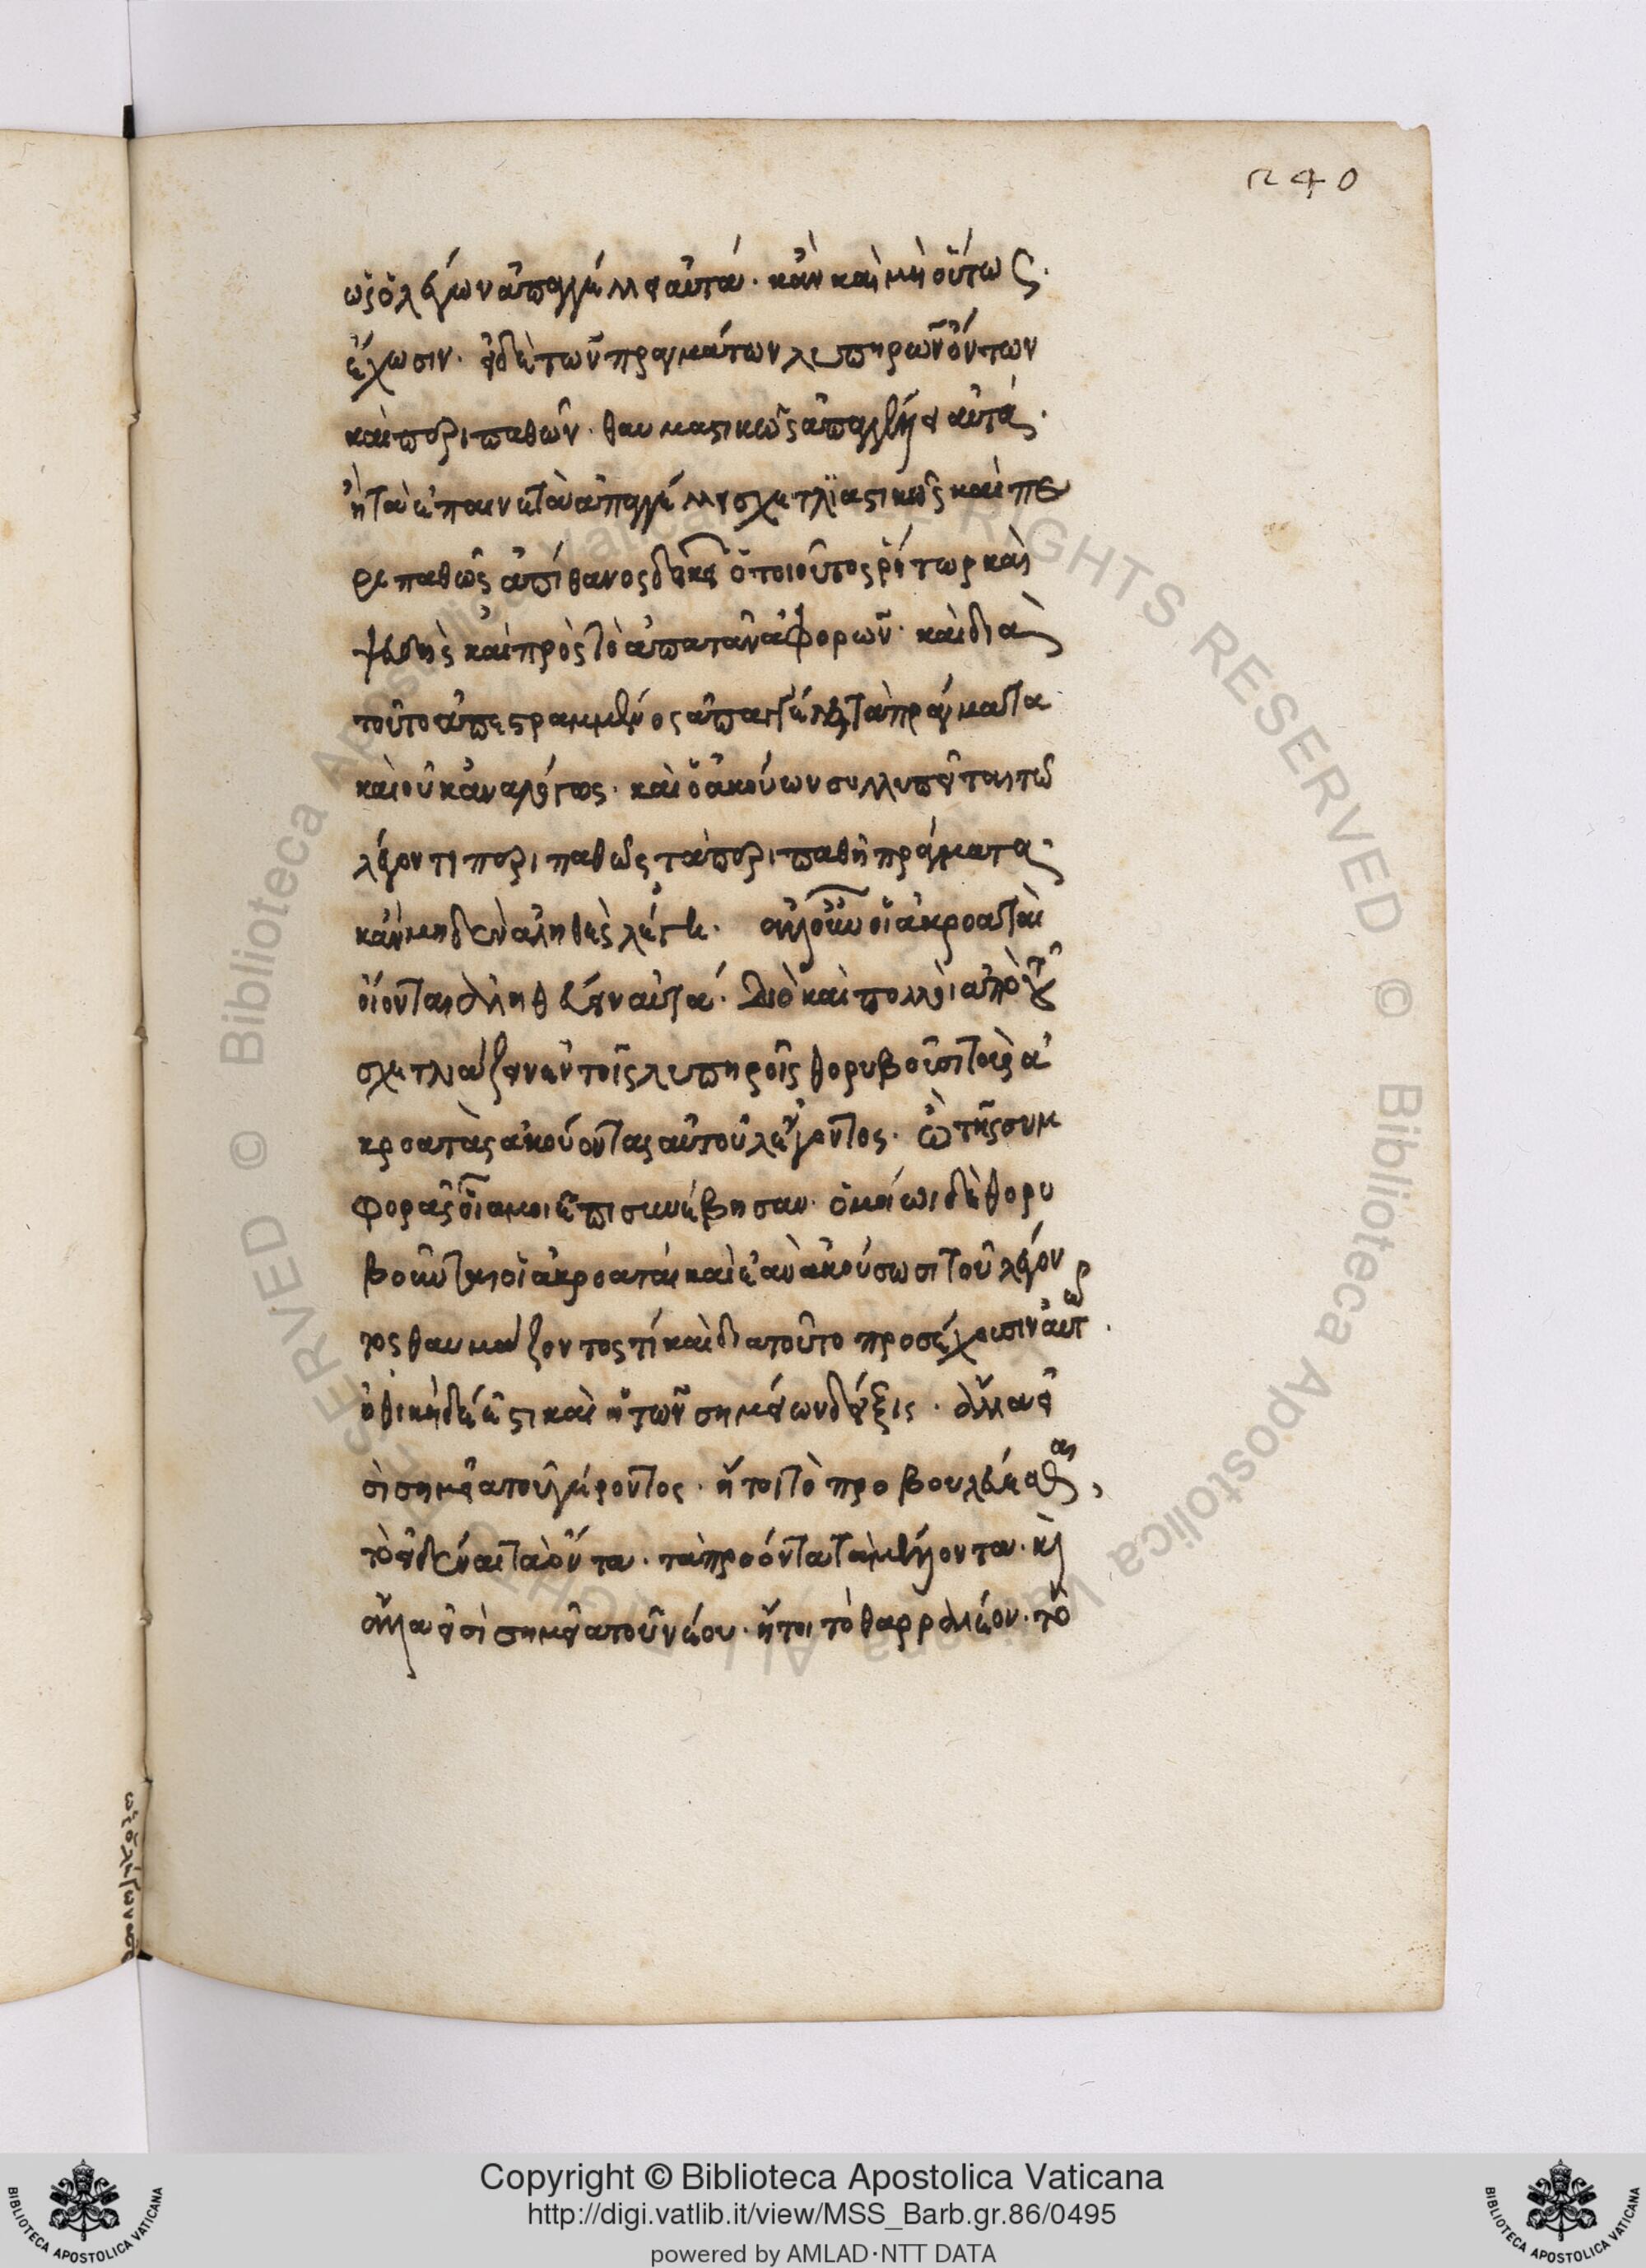 240
ὡς ὁ λέγων ἀπαγγέλλει αὐτά· κἂν καὶ μὴ οὕτως
ἔχωσιν· εἰ δὲ τῶν πραγμάτων λυπηρῶν ὄντων
καὶ περιπαθῶν· θαυμαστικῶς ἀπαγγέλῃ αὐτά·
ἢ τὰ ἐπαινετὰ ἀπαγγέλλει σχετλιαστικῶς καὶ πε
ριπαθῶς ἀπίθανος δοκεῖ ὁ τοιοῦτος ῥήτωρ καὶ
ψευδὴς καὶ πρὸς τὸ ἀπατᾶν ἀφορῶν· καὶ διὰ
τοῦτο ἀπεστραμμένος ἀπαγγέλλει τὰ πράγματα
καὶ οὐκ ἀναλόγως· καὶ ὁ ἀκούων συλλυπεῖται τῷ
λέγοντι περιπαθῶς τὰ περιπαθῆ πράγματα·
κἂν μηδὲν ἀληθὲς λέγει· ἀλλ' οὖν οἱ ἀκροαταὶ
οἴονται ἀληθῆ εἶναι αὐτά· Διὸ καὶ πολλοὶ ἀπὸ τοῦ
σχετλιάζειν ἐν τοῖς λυπηροῖς θορυβοῦσι τοὺς ἀ
κροατὰς ἀκούοντας αὐτοῦ λέγοντος· ὢ τῆς συμ
φορᾶς οἷα μοι ἐπισυνέβησαν· ὁμοίως δὲ θορυ
βοῦνται οἱ ἀκροαταὶ καὶ ἐὰν ἀκούσωσι τοῦ λέγον
τος θαυμάζοντος τί καὶ διατοῦτο προσέχουσιν αὐτῷ·
ἠθικὴ δέ ἐστι καὶ ἡ τῶν σημείων δεῖξις· ἄλλα εἰ
σὶ σημεῖα τοῦ γέροντος· ἤτοι τὸ προβουλεύεσθαι,
τὸ εἰδέναι τὰ ὄντα· τὰ προόντα τὰ μέλλοντα· καὶ
ἄλλα εἰσὶ σημεῖα τοῦ νέου· ἤτοι τὸ θαρραλέον· τὸ
Copyright © Biblioteca Apostolica Vaticana
http://digi.vatlib.it/view/MSS_Barb.gr.86/0495
powered by AMLAD·NTT DATA